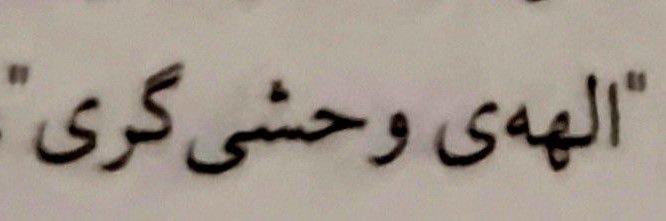 "الهه‌ی وحشی‌گری"